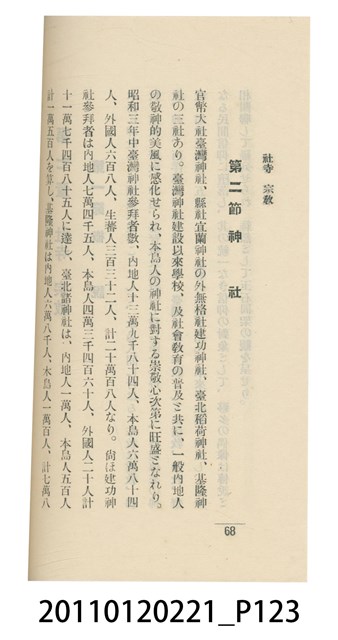 社寺 宗敎
第二節 神社
官幣大社臺灣神社、縣社宜蘭神社の外無格社建功神社、臺北稻荷神社、基隆神
社の三社あり。臺灣神社建設以來學校、及社會敎育の普及と共に、一般內地人
の敬神的美風に感化せられ、本島人の神社に對する崇敬心次第に旺盛となれり。
昭和三年中臺灣神社參拜者數、內地人十三萬九千八十四人、本島人六萬八千四
人、外國人六百八人、生蕃人三百三十二人、計二十萬百八人なり。尙ほ建功神
社參拜者は內地人七萬四千五人、本島人四萬三千四百六十人、外國人二十人計
十一萬七千四百八十五人に達し、臺北諸神社は、內地人一萬人、本島人五百人
計一萬五百人を算し、基隆神社は內地人六萬八千人、本島人一萬百人、計七萬八
68
20110120221_P123